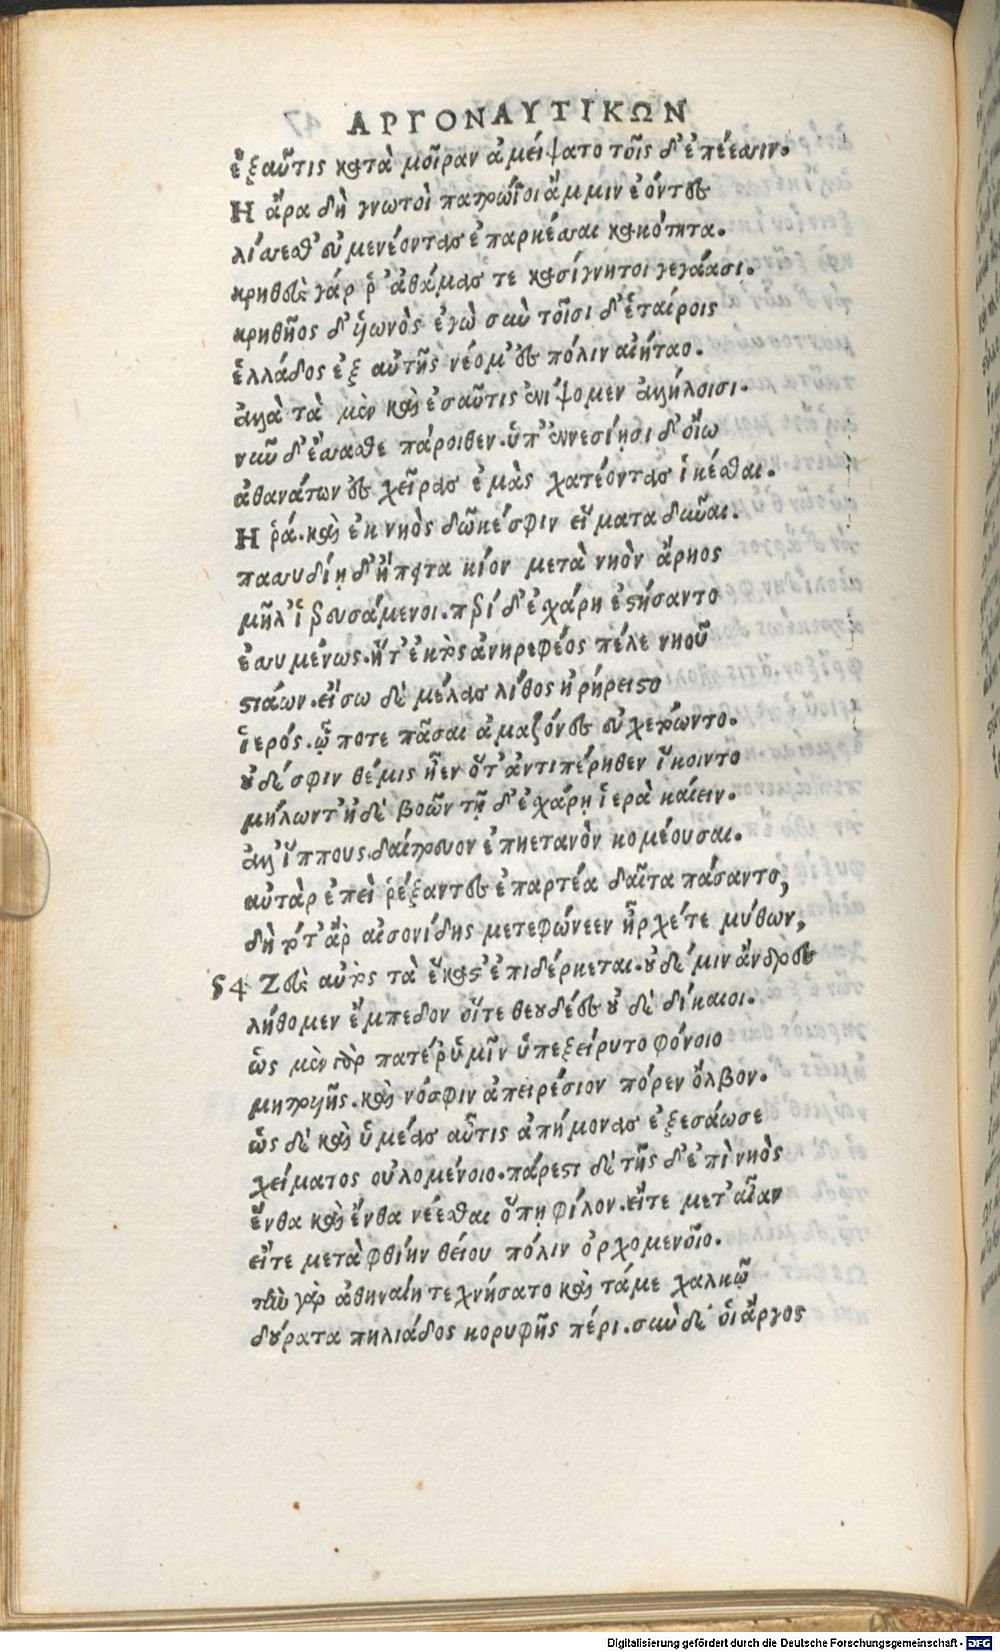 ΑΡΓΟΝΑΥΤΙΚΩΝ
ἐξαῦτις κατὰ μοῖραν ἀμείψατο τοῖς δ' ἐπέεσσιν.
Η ἄρα δὴ γνωτοὶ πατρώϊοι ἄμμιν ἐόντες
λίσσεσθ' εὐμενέοντας ἐπαρκέσσαι κακότητα.
κρηθεὺς γάρ ῥ' ἀθάμας τε κασίγνητοι γεγάασι.
κρηθῆος δ' υἱωνὸς ἐγὼ σὺν τοῖσι δ' ἑταίροις
ἑλλάδος ἐξ αὐτῆς νέομ' ἐς πόλιν αἰήταο.
ἀλλὰ τὰ μὲν καὶ ἐσαῦτις ἐνίψομεν ἀλλήλοισι.
νῦν δ' ἕσσασθε πάροιθεν. ὑπ' ἐννεσίῃσι δ' ὀΐω
ἀθανάτων ἐς χεῖρας ἐμὰς χατέοντας ἱκέσθαι.
Η ῥά. καὶ ἐκ νηὸς δῶκέ σφιν εἵματα δῦναι.
πασσυδίῃ δ' ἤπειτα κίον μετὰ νηὸν ἄρηος
μῆλ' ἱερουσάμενοι. περὶ δ' ἐχάρῃ ἐστήσαντο
ἐσσυμένως. ἥτ' ἐκτὸς ἀνηρεφέος πέλε νηοῦ
στιάων. εἴσω δὲ μέλας λίθος ἠρήρειστο
ἱερός. ᾧ ποτε πᾶσαι ἀμαζόνες εὐχετόωντο.
οὐδέ σφιν θέμις ἦεν ὅτ' ἀντιπέρηθεν ἵκοιντο
μήλων τ' ἠδὲ βοῶν τῇ δ' ἐχάρῃ ἱερὰ καίειν.
ἀλλ' ἵππους δαίτρευον ἐπηετανὸν κομέουσαι.
αὐτὰρ ἐπεὶ ῥέξαντες ἐπαρτέα δαῖτα πάσαντο,
δὴ τότ' ἄρ αἰσονίδης μετεφώνεεν ἦρχέ τε μύθων,
54 Ζεὺς αὐτὸς τὰ ἕκαστ' ἐπιδέρκεται. οὐδέ μιν ἄνδρες
λήθομεν ἔμπεδον οἵτε θεουδέες οὐδὲ δίκαιοι.
ὣς μὲν γὰρ πατέρ' ὑμῖν ὑπεξείρυτο φόνοιο
μητρυῆς. καὶ νόσφιν ἀπειρέσιον πόρεν ὄλβον.
ὣς δὲ καὶ ὑμέας αὖτις ἀπήμονας ἐξεσάωσε
χείματος οὐλομένοιο. πάρεστι δὲ τῆς δ' ἐπὶ νηὸς
ἔνθα καὶ ἔνθα νέεσθαι ὅπῃ φίλον. εἴτε μετ' αἶαν
εἴτε μετὰ φθίην θείου πόλιν ὀρχομενοῖο.
τὴν γὰρ ἀθηναίη τεχνήσατο καὶ τάμε χαλκῷ
δούρατα πηλιάδος κορυφῆς πέρι. σὺν δέ οἱ ἄργος
Digitalisierung gefördert durch die Deutsche Forschungsgemeinschaft - DFG